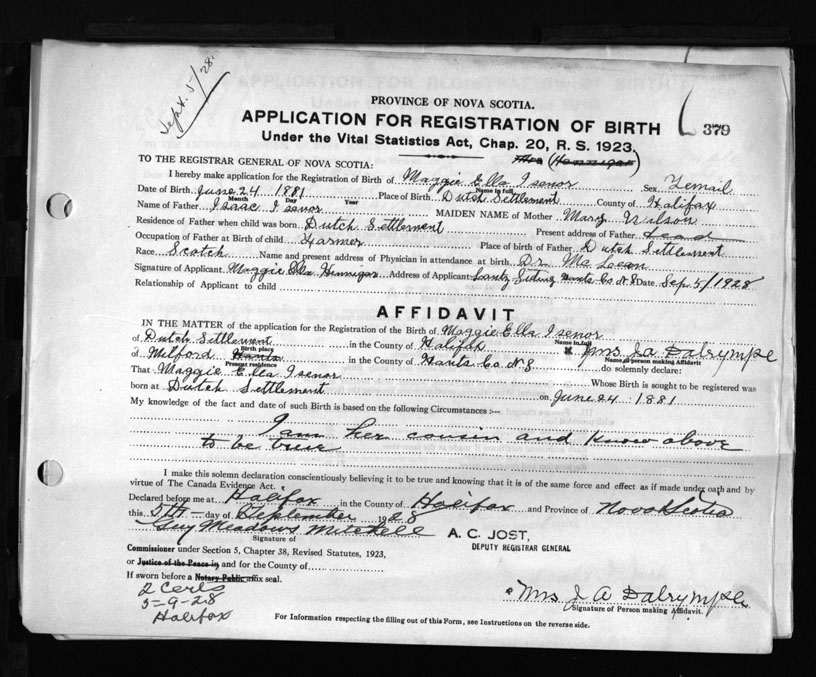 Sept. 5/28.
PROVINCE OF NOVA SCOTIA.
APPLICATION FOR REGISTRATION OF BIRTH
379
Under the Vital Statistics Act, Chap. 20, R. S. 1923.
(Hennigar)
TO THE REGISTRAR GENERAL OF NOVA SCOTIA:
I hereby make application for the Registration of Birth of Maggie Ella Isenor Sex Femail
Name in full
Date of Birth June 24 1881 Place of Birth Dutch Settlement County of Halifax
Month Day Year
Name of Father Isaac Isenor MAIDEN NAME of Mother Mary Wilson
Residence of Father when child was born Dutch Settlement Present address of Father Dead
Occupation of Father at Birth of child Farmer Place of birth of Father Dutch Settlement
Race Scotch Name and present address of Physician in attendance at birth Dr. McLean
Signature of Applicant Maggie Ella Hennigar Address of Applicant Lantz Siding Hants Co N S Date Sep 5/1928
Relationship of Applicant to child
AFFIDAVIT
IN THE MATTER of the application for the Registration of the Birth of Maggie Ella Isenor
Name in full
of Dutch Settlement in the County of Halifax I, Mrs J. A. Dalrymple
Birth place Name of person making Affidavit
of Milford Hants in the County of Hants Co N S do solemnly declare:
Present residence
That Maggie Ella Isenor Whose Birth is sought to be registered was
born at Dutch Settlement on June 24 1881
My knowledge of the fact and date of such Birth is based on the following Circumstances :—
I am her cousin and know above
to be true
I make this solemn declaration conscientiously believing it to be true and knowing that it is of the same force and effect as if made under oath and by
virtue of The Canada Evidence Act.
Declared before me at Halifax in the County of Halifax and Province of Nova Scotia
this 5th day of September 1928
Guy Meadows Mitchell
Signature of
A. C. JOST,
DEPUTY REGISTRAR GENERAL
Commissioner under Section 5, Chapter 38, Revised Statutes, 1923,
or Justice of the Peace in and for the County of
If sworn before a Notary Public affix seal.
2 Certs
5-9-28
Halifax
Mrs J A Dalrymple
Signature of Person making Affidavit.
For Information respecting the filling out of this Form, see Instructions on the reverse side.